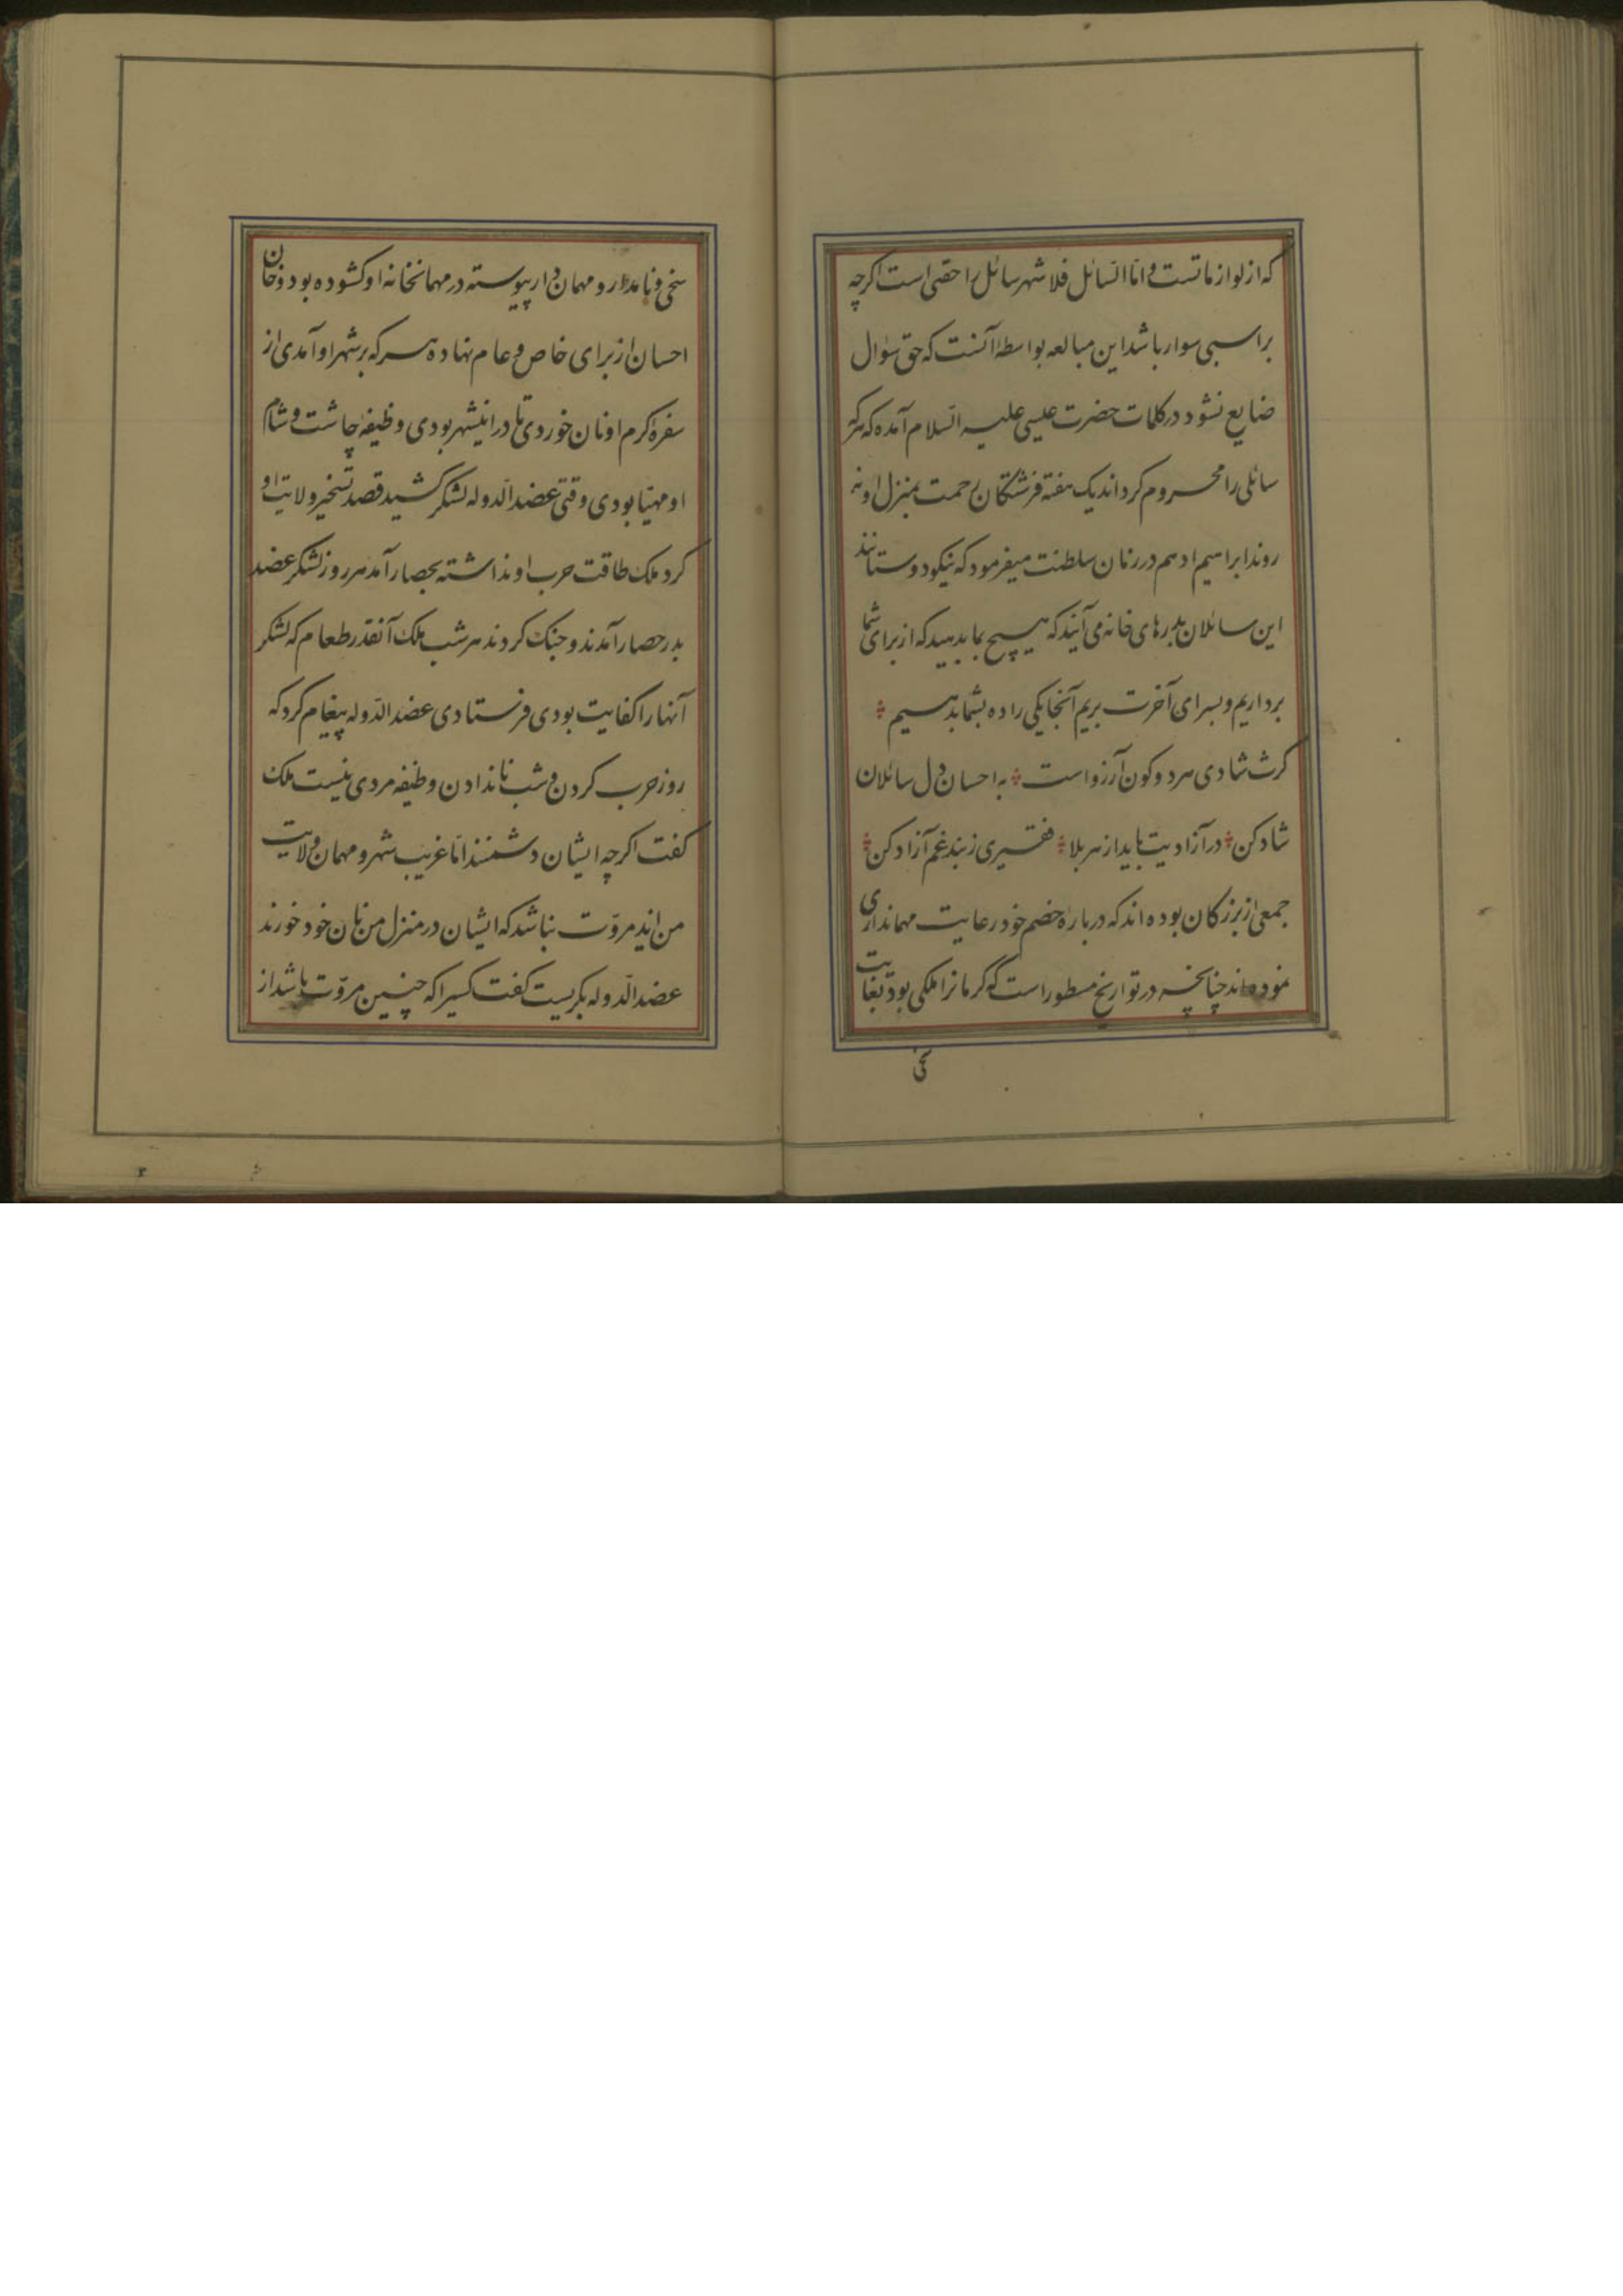 که از لوازماتست و اما السائل فلا تنهر سائل را حقی است اکرچه
بر اسبی سوار باشد این مبالغه بواسطه آنست که حق سؤال
ضایع نشود در کلمات حضرت عیسی علیه السلام آمده که هرکه
سائلی را محروم کرداند یک هفته فرشتکان رحمت بمنزل او نه
روند ابراهیم ادهم در زمان سلطنت میفرمود که نیکو دوستانند
این سائلان بدرهای خانه می آیند که هیچ بما بدهید که از برای شما
برداریم و بسرای آخرت بریم آنجا یکی را ده بشما بدهیم
کرت شادی هر دو کون آرزو است به احسان دل سائلان
شاد کن در آزادیت باید از هر بلا فقیری ز بند غم آزاد کن
جمعی از بزرکان بوده اند که در باره خصم خود رعایت مهمانداری
نموده اند چنانچه در تواریخ مسطور است که کرمانرا ملکی بود بغایت
سخی
سخی و نامدار و مهمان دار پیوسته در مهمانخانه او کشوده بود و خان
احسان از برای خاص و عام نهاده هر که بر شهر او آمدی از
سفره کرم او نان خوردی تا در اینشهر بودی وظیفه چاشت و شام
او مهیا بودی وقتی عضد الدوله لشکر کشید قصد تسخیر ولایت او
کرد ملک طاقت حرب او نداشته بحصار آمد هر روز لشکر عضد
بدر حصار آمدند و جنک کردند هر شب ملک آنقدر طعام که لشکر
آنها را کفایت بودی فرستادی عضد الدوله پیغام کرد که
روز حرب کردن و شب نان دادن وظیفه مردی نیست ملک
کفت اکرچه ایشان دشمنند اما غریب شهر و مهمان ولایت
من اند مروت نباشد که ایشان در منزل من نان خود خورند
عضد الدوله بکریست کفت کسیرا که چنین مروت باشد از